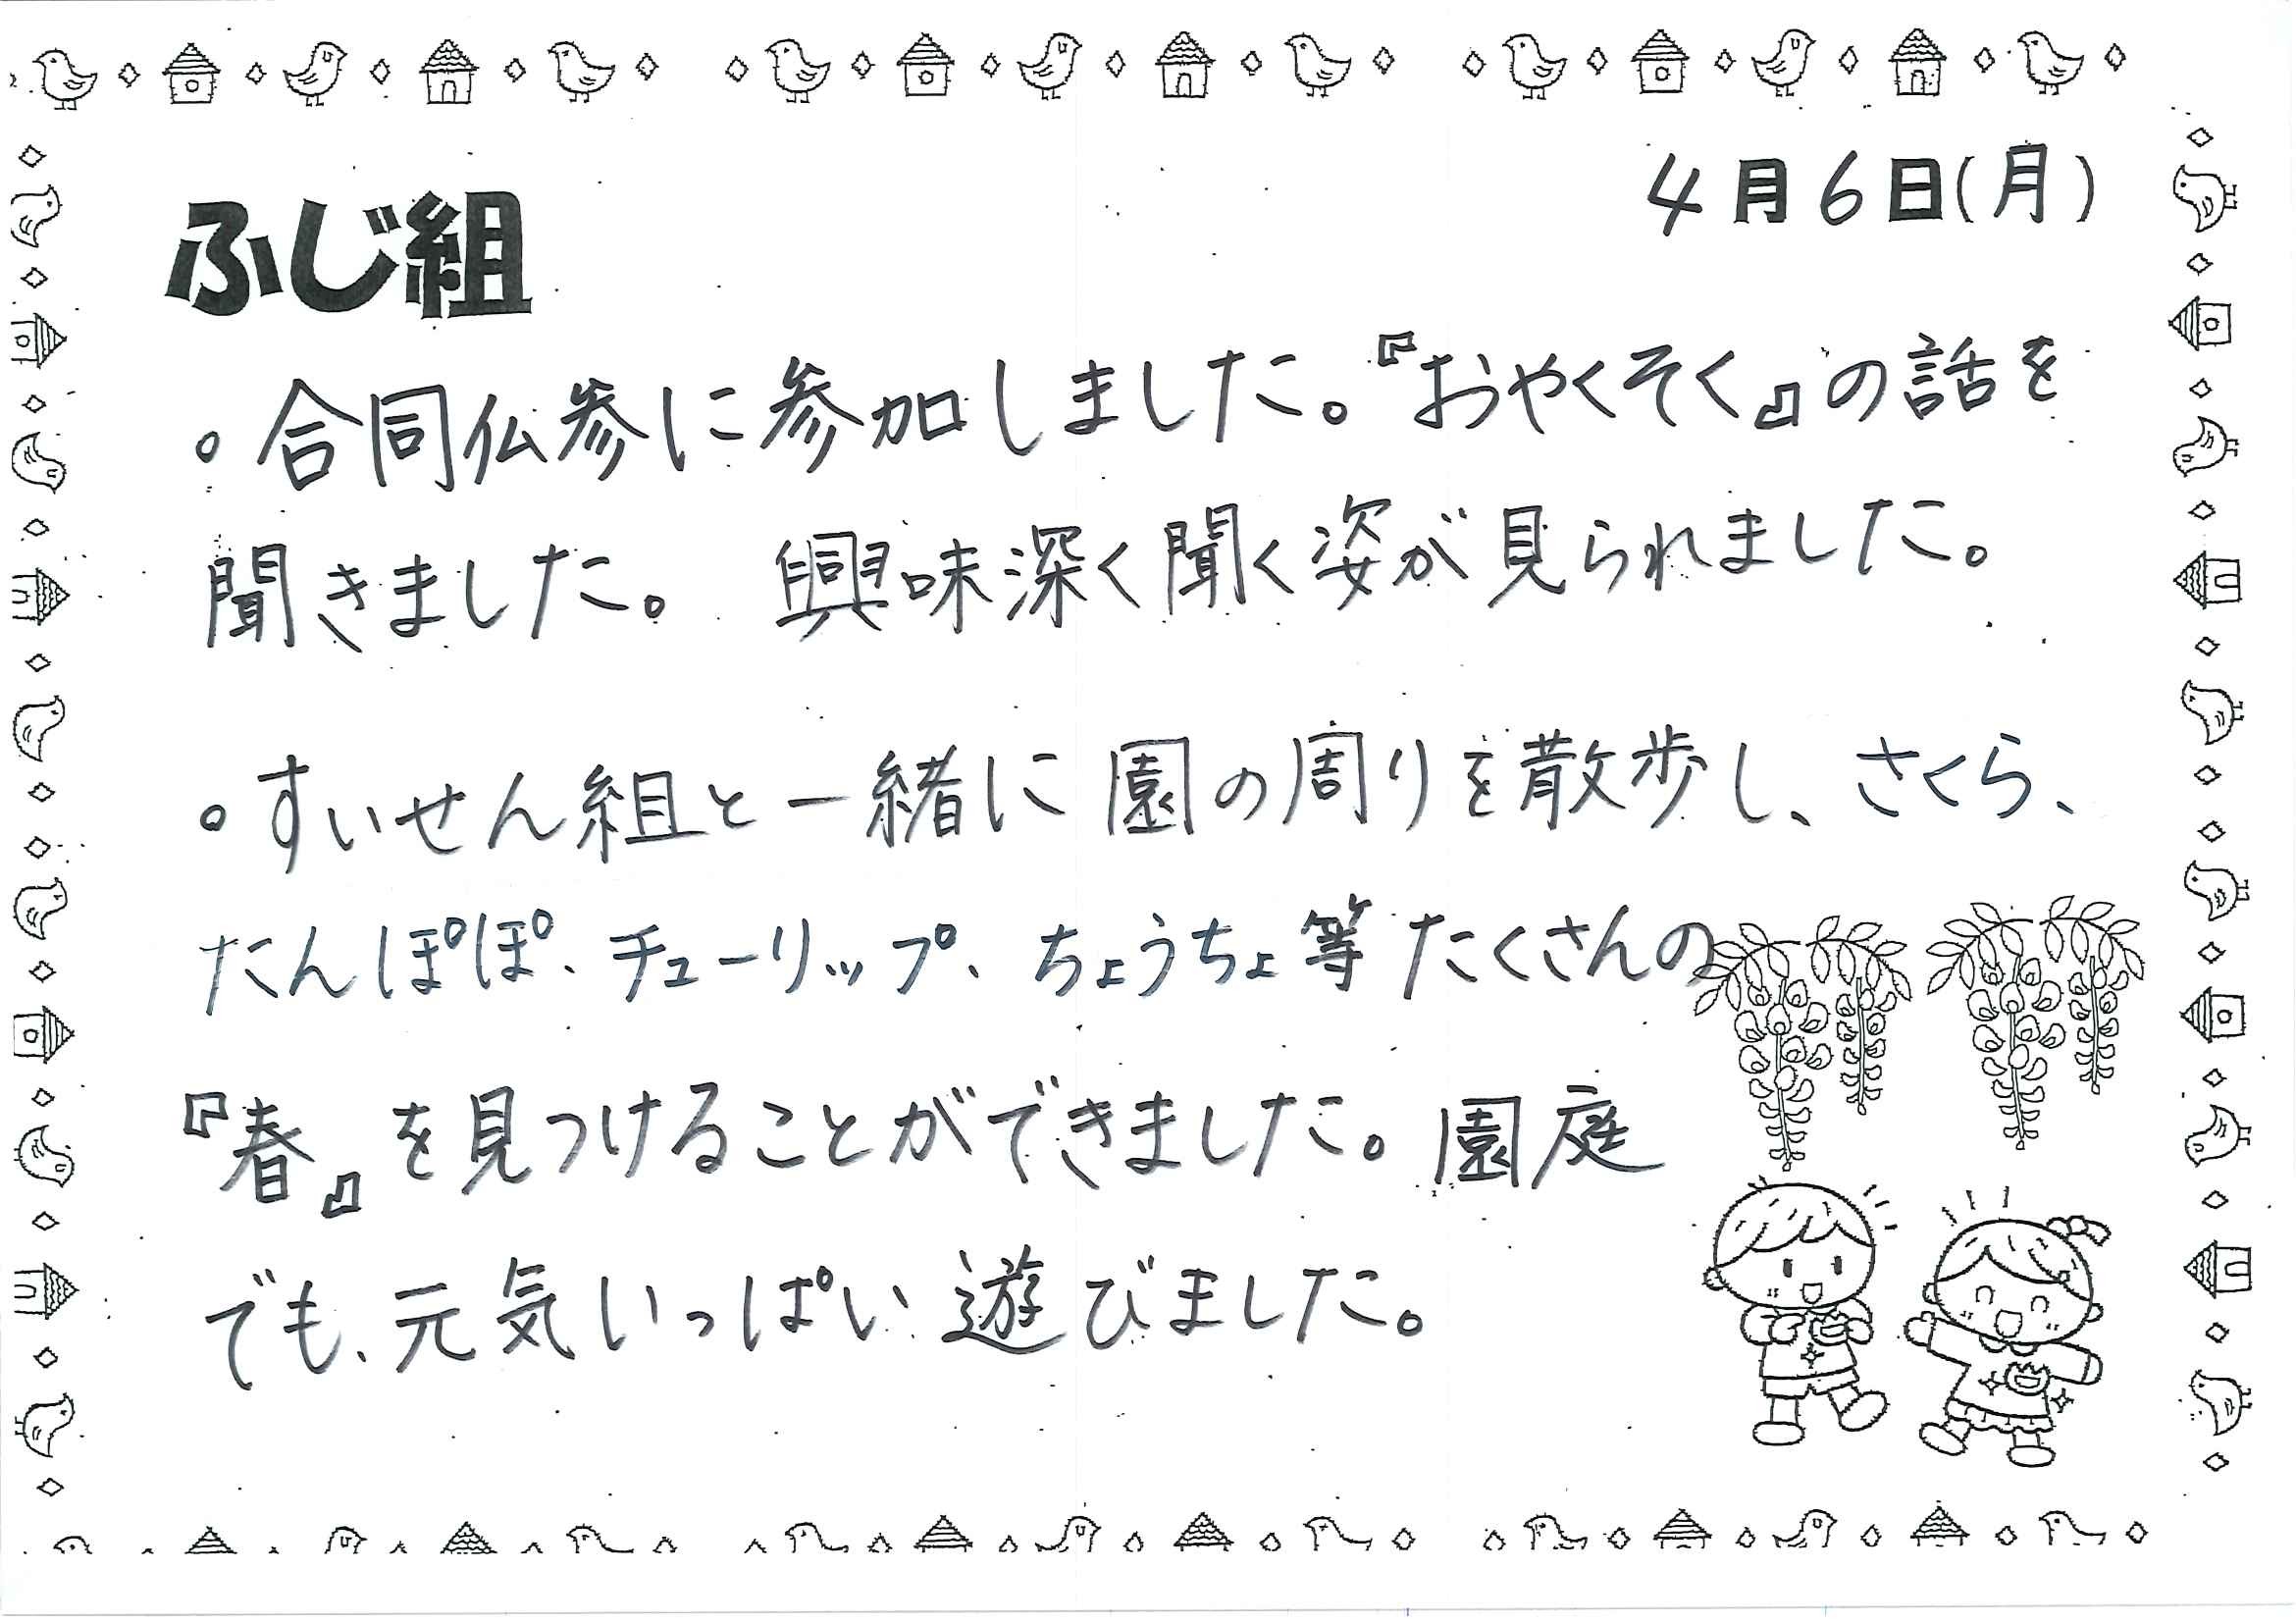 4月6日(月)
ふじ組
。合同仏参に参加しました。『おやくそく』の話を
聞きました。 興味深く聞く姿が見られました。
。すいせん組と一緒に園の周りを散歩し、さくら、
たんぽぽ、チューリップ、ちょうちょ等たくさんの
『春』を見つけることができました。園庭
でも、元気いっぱい遊びました。